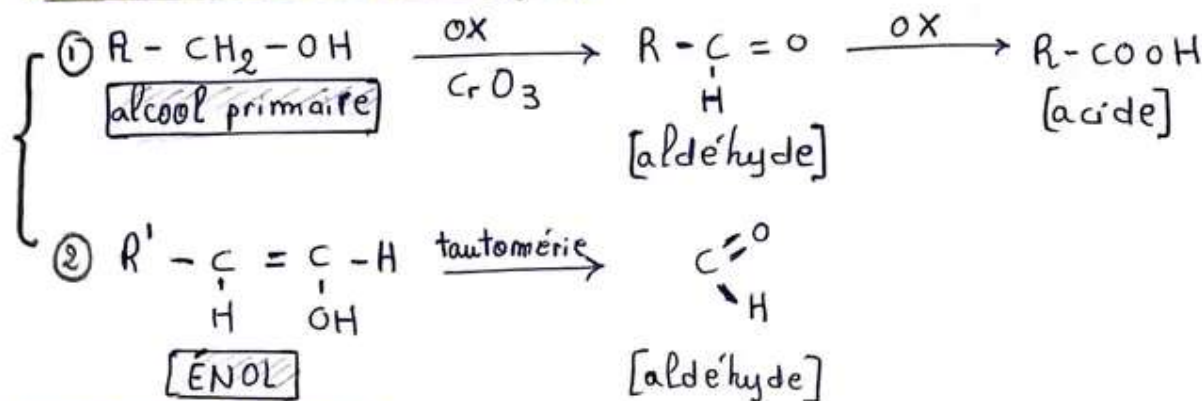 ① R - CH2 - OH  OX CrO3 → R - C = O  OX → R - COOH
H
[alcool primaire] [aldéhyde] [acide]
② R' - C = C - H  tautomérie → C = O
H OH H
[ÉNOL] [aldéhyde]